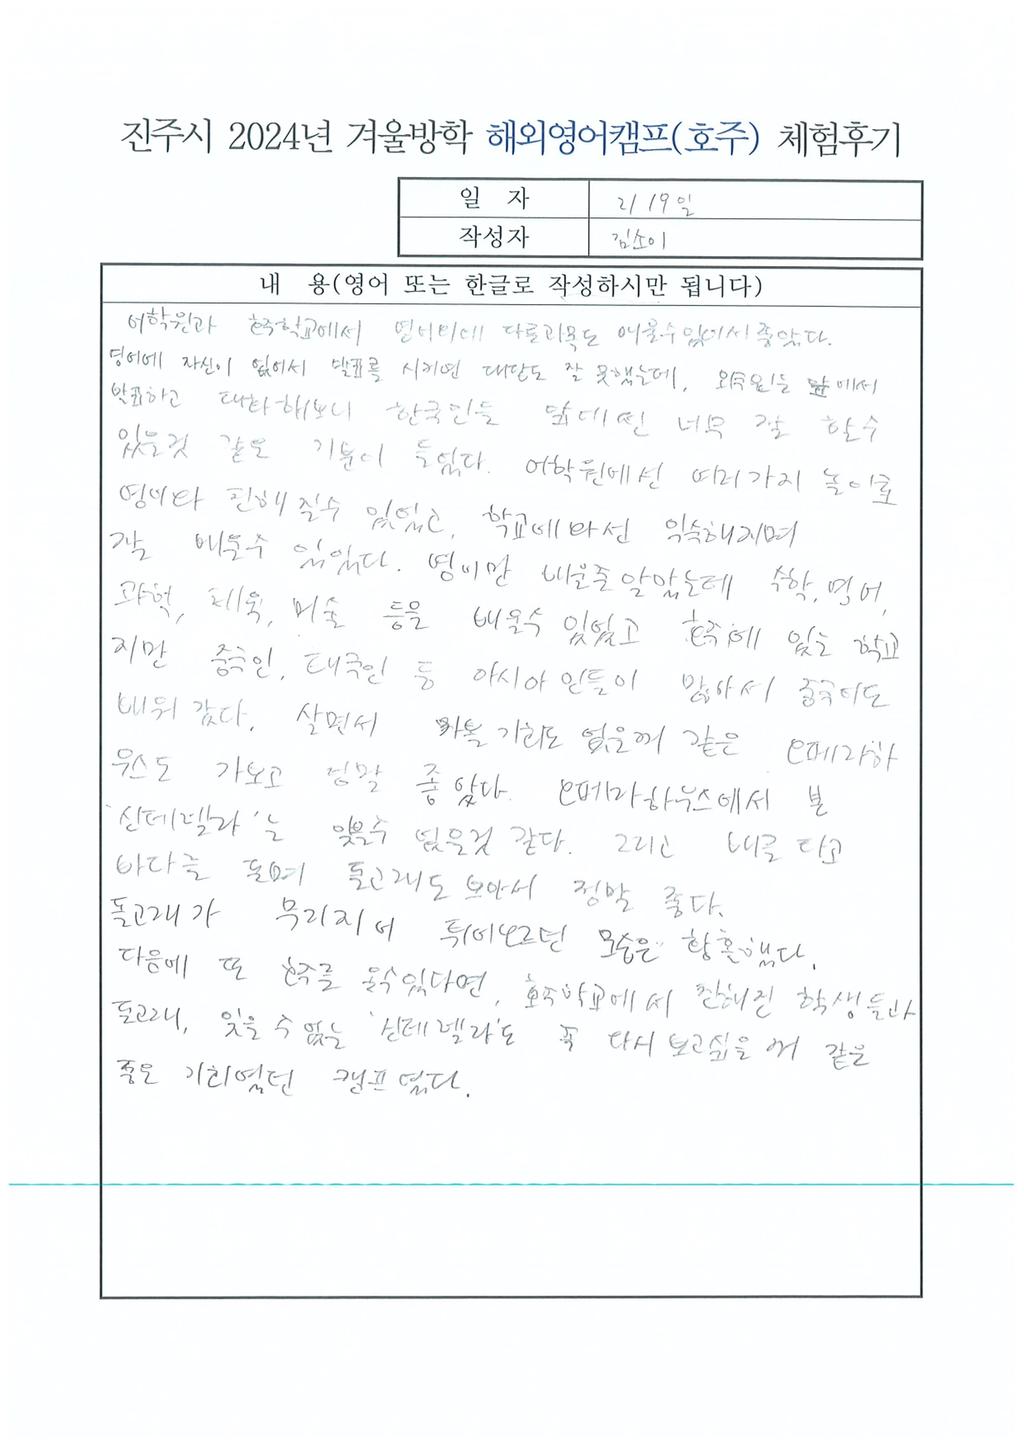 진주시 2024년 겨울방학 해외영어캠프(호주) 체험후기
일 자 2/19일
작성자 김소이
내 용(영어 또는 한글로 작성하시만 됩니다)
어학원과 호주학교에서 영어외에 다른과목도 배울수있어서좋았다.
영어에 자신이 없어서 발표를 시키면 대답도 잘 못했는데, 외국인들 앞에서
발표하고 대화해보니 한국인들 앞에선 너무 잘 할수
있을것 같은 기분이 들었다. 어학원에선 여러가지 놀이로
영어와 친해질수 있었고, 학교에와선 익숙해지며
잘 배울수 있었다. 영어만 배운줄알았는데 수학, 영어,
과학, 체육, 미술 등을 배울수 있었고 호주에 있는 학교
지만 중국인, 태국인 등 아시아인들이 많아서 중국어도
배워 갔다. 살면서 와볼 기회도 없을꺼 같은 오페라하
우스도 가보고 정말 좋았다. 오페라하우스에서 본
'신데렐라'는 잊을수 없을것 같다. 그리고 배를 타고
바다를 돌며 돌고래도 보아서 정말 좋다.
돌고래가 무리지어 튀어오르던 모습은 황홀했다.
다음에 또 호주를 올수있다면, 호주학교에서 친해진 학생들과
돌고래, 잊을 수 없는 '신데렐라'도 꼭 다시 보고싶을 꺼 같은
좋은 기회였던 캠프였다.